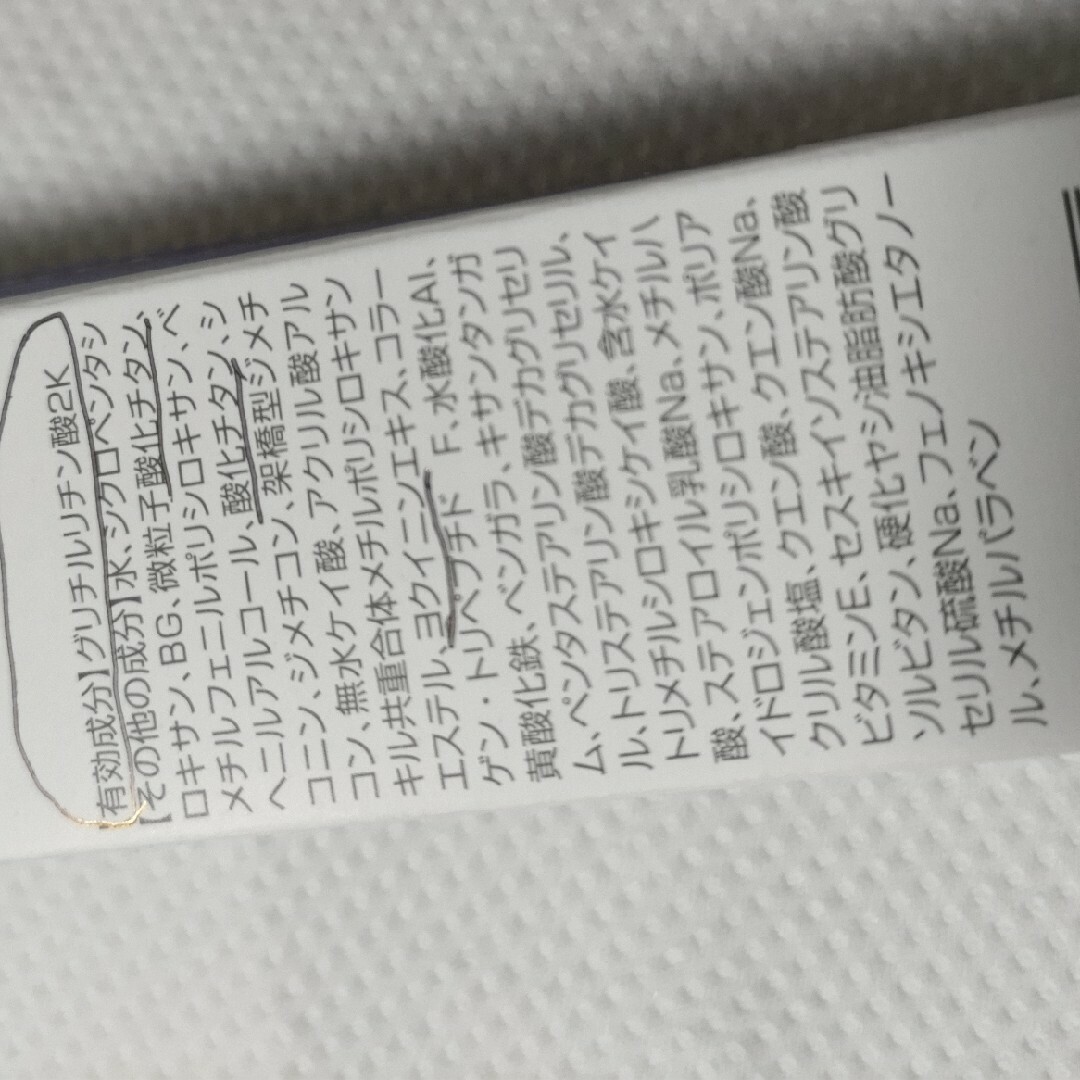 【有効成分】グリチルリチン酸2K
【その他の成分】水、シクロペンタシ
ロキサン、BG、微粒子酸化チタン、
メチルフェニルポリシロキサン、ベ
ヘニルアルコール、酸化チタン、シ
コニン、ジメチコン、架橋型ジメチ
コン、無水ケイ酸、アクリル酸アル
キル共重合体メチルポリシロキサン
エステル、ヨクイニンエキス、コラー
ゲン・トリペプチド F、水酸化Al、
黄酸化鉄、ベンガラ、キサンタンガ
ム、ペンタステアリン酸デカグリセリ
ル、トリステアリン酸デカグリセリル、
トリメチルシロキシケイ酸、含水ケイ
酸、ステアロイル乳酸Na、メチルハ
イドロジェンポリシロキサン、ポリア
クリル酸塩、クエン酸、クエン酸Na、
ビタミンE、セスキイソステアリン酸
ソルビタン、硬化ヤシ油脂肪酸グリ
セリル硫酸Na、フェノキシエタノー
ル、メチルパラベン